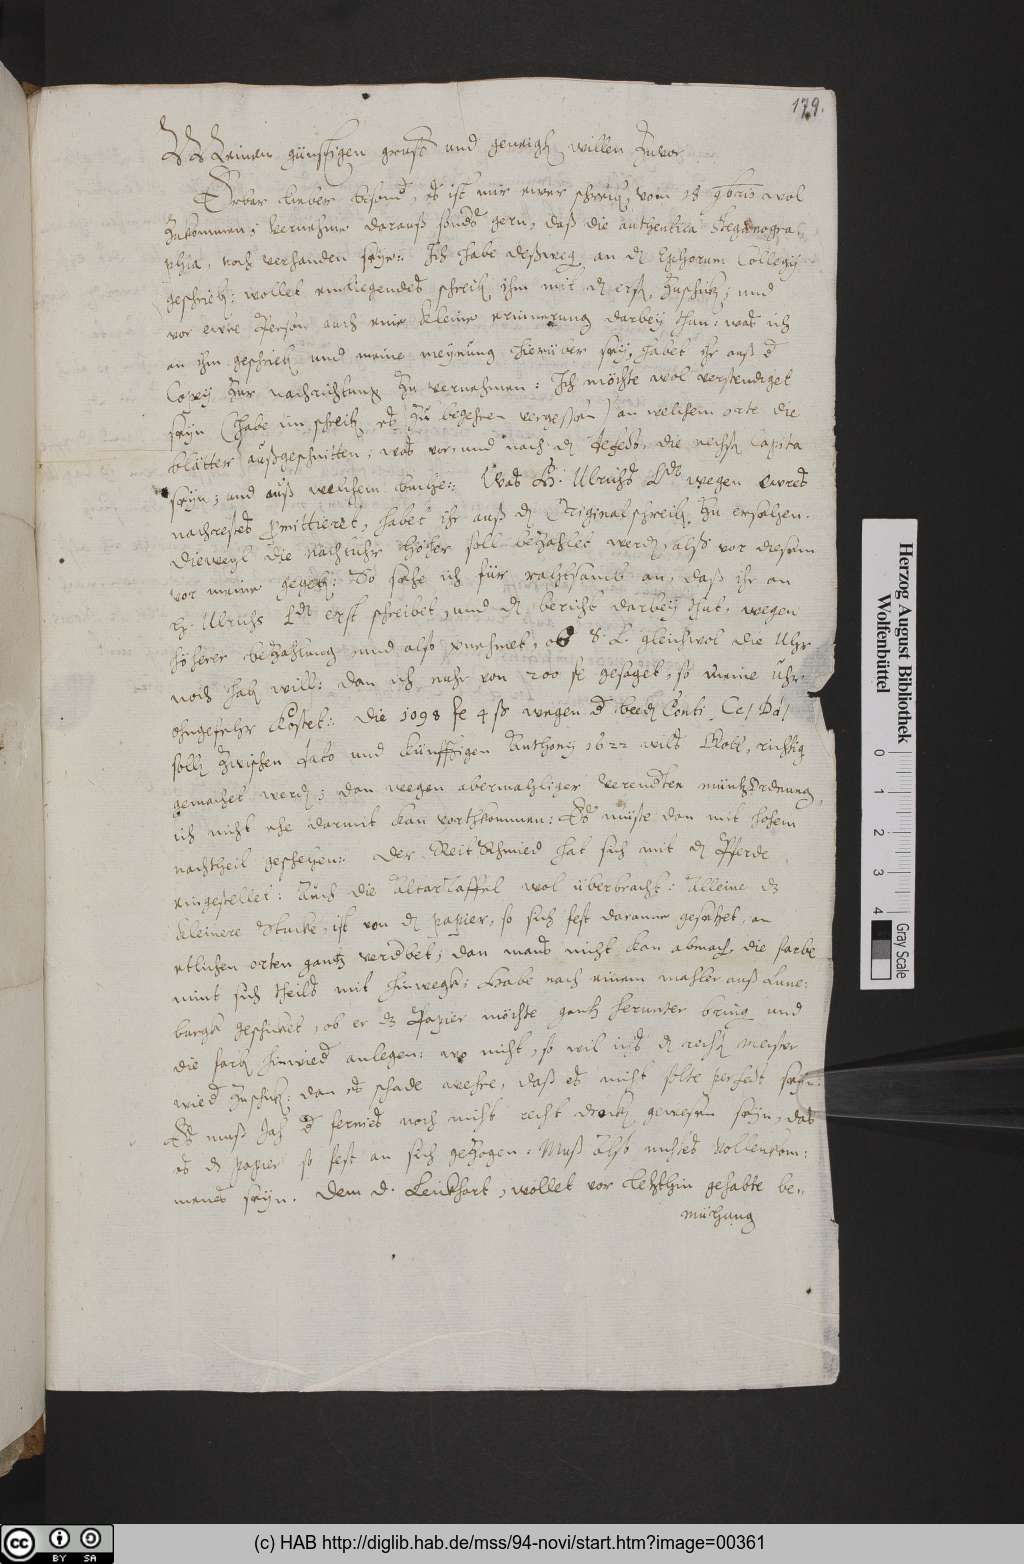 179.
Meinen günstigen grusß und geneigt willen Zuvor
Erbar Lieber besond, Es ist mir ewer schreib. vom 18 9bris wol
Zukommen; Vernehme darauß sonds gern, daß die authentica Steganogra-
phia, noch verhanden seye: Ich habe deßweg an d. Ephorum Collegij
geschrieb: wollet einliegendes schreib. ihm mit d. erst. Zuschick; und
vor ewre Person auch eine kleine erinnerung darbey thun: was ich
an ihm geschrieb und meine meynung hierüber sey, habet ihr auß d
Copij zur nachrichtung zu vernehmen: Ich möchte wol verstendiget
seyn (habe im schreib. es zu begehren vergessen) an welchem orte die
blätter außgeschnitten; was vor, und nach d. defect, die nechst Capita
seyn; und auß welchem buche: Was H. Ulrichs Ld. wegen ewres
nachrestes promittieret, habet ihr auß d. Originalschreib. zu ersehen.
Dieweyl die nachtuhr höher soll bezahlet werd, alß vor diesem
vor meine gegeb: So sehe ich für rahtsamb an, daß ihr an
H. Ulrichs Ld. erst schreibet, und d. bericht darbey thut, wegen
höherer bezahlung und also vernehmet, ob S. L. gleichwol die Uhr
noch hab will: dan ich nuhr von 200 fl gesaget, so meine Uhr
ohngefehr kostet: Die 1098 fl 4 ß wegen d beed Conti, Ce/ Da/
soll zwischen dato und künfftigen Anthonij 1622 wils Gott, richtig
gemachet werd; dan wegen abermahliger verendten müntzOrdnung
ich nicht ehe darmit kan vorthkommen: Es müste dan mit hohem
nachtheil geschehen: Der ReitSchmied hat sich mit d. Pferde
eingestellet: Auch die AltarTaffel wol überbracht: Alleine dz
kleinere Stucke, ist von d. papier, so sich fest daranne gesetzet, an
etlichen orten gantz verdbet; dan mans nicht kan abmach, die farbe
nimt sich theils mit hinwegk; Habe nach einem mahler auß Lune-
burgk geschicket, ob er dz Papier möchte gantz herunter bring und
die farb hinwied anlegen: wo nicht, so wil ichs d. recht meister
wied zuschick: dan es schade wehre, daß es nicht solte perfect seyn:
Es muß Jah d fernies noch nicht recht druck gewesen seyn, das
es d. papier so fest an sich gezogen. Muß also nichts Vollenkom-
menes seyn. Dem D. Leickhart, wollet vor Letzthin gehabte be-
mühung
Herzog August Bibliothek
Wolfenbüttel
0 1 2 3 4
Gray Scale
cc BY SA
(c) HAB http://diglib.hab.de/mss/94-novi/start.htm?image=00361